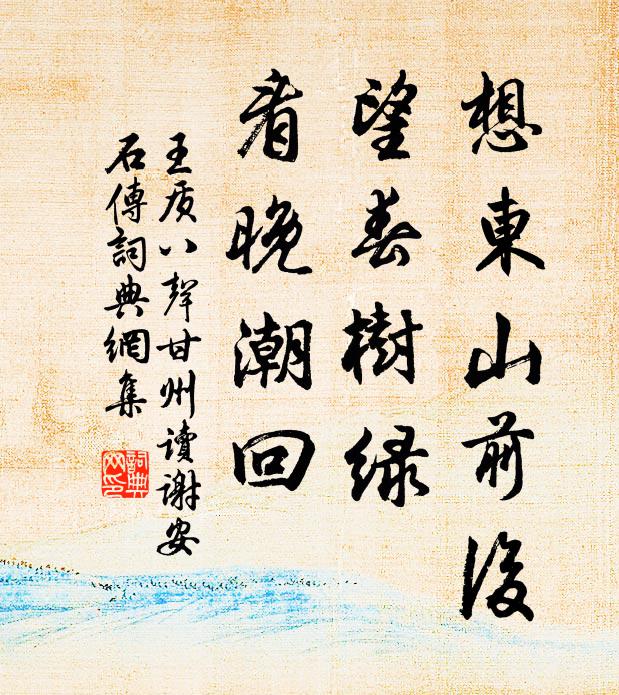 想東山前後
望春樹綠
看晚潮回
王质八聲甘州讀謝安
石傳詞典網集
詞典網印